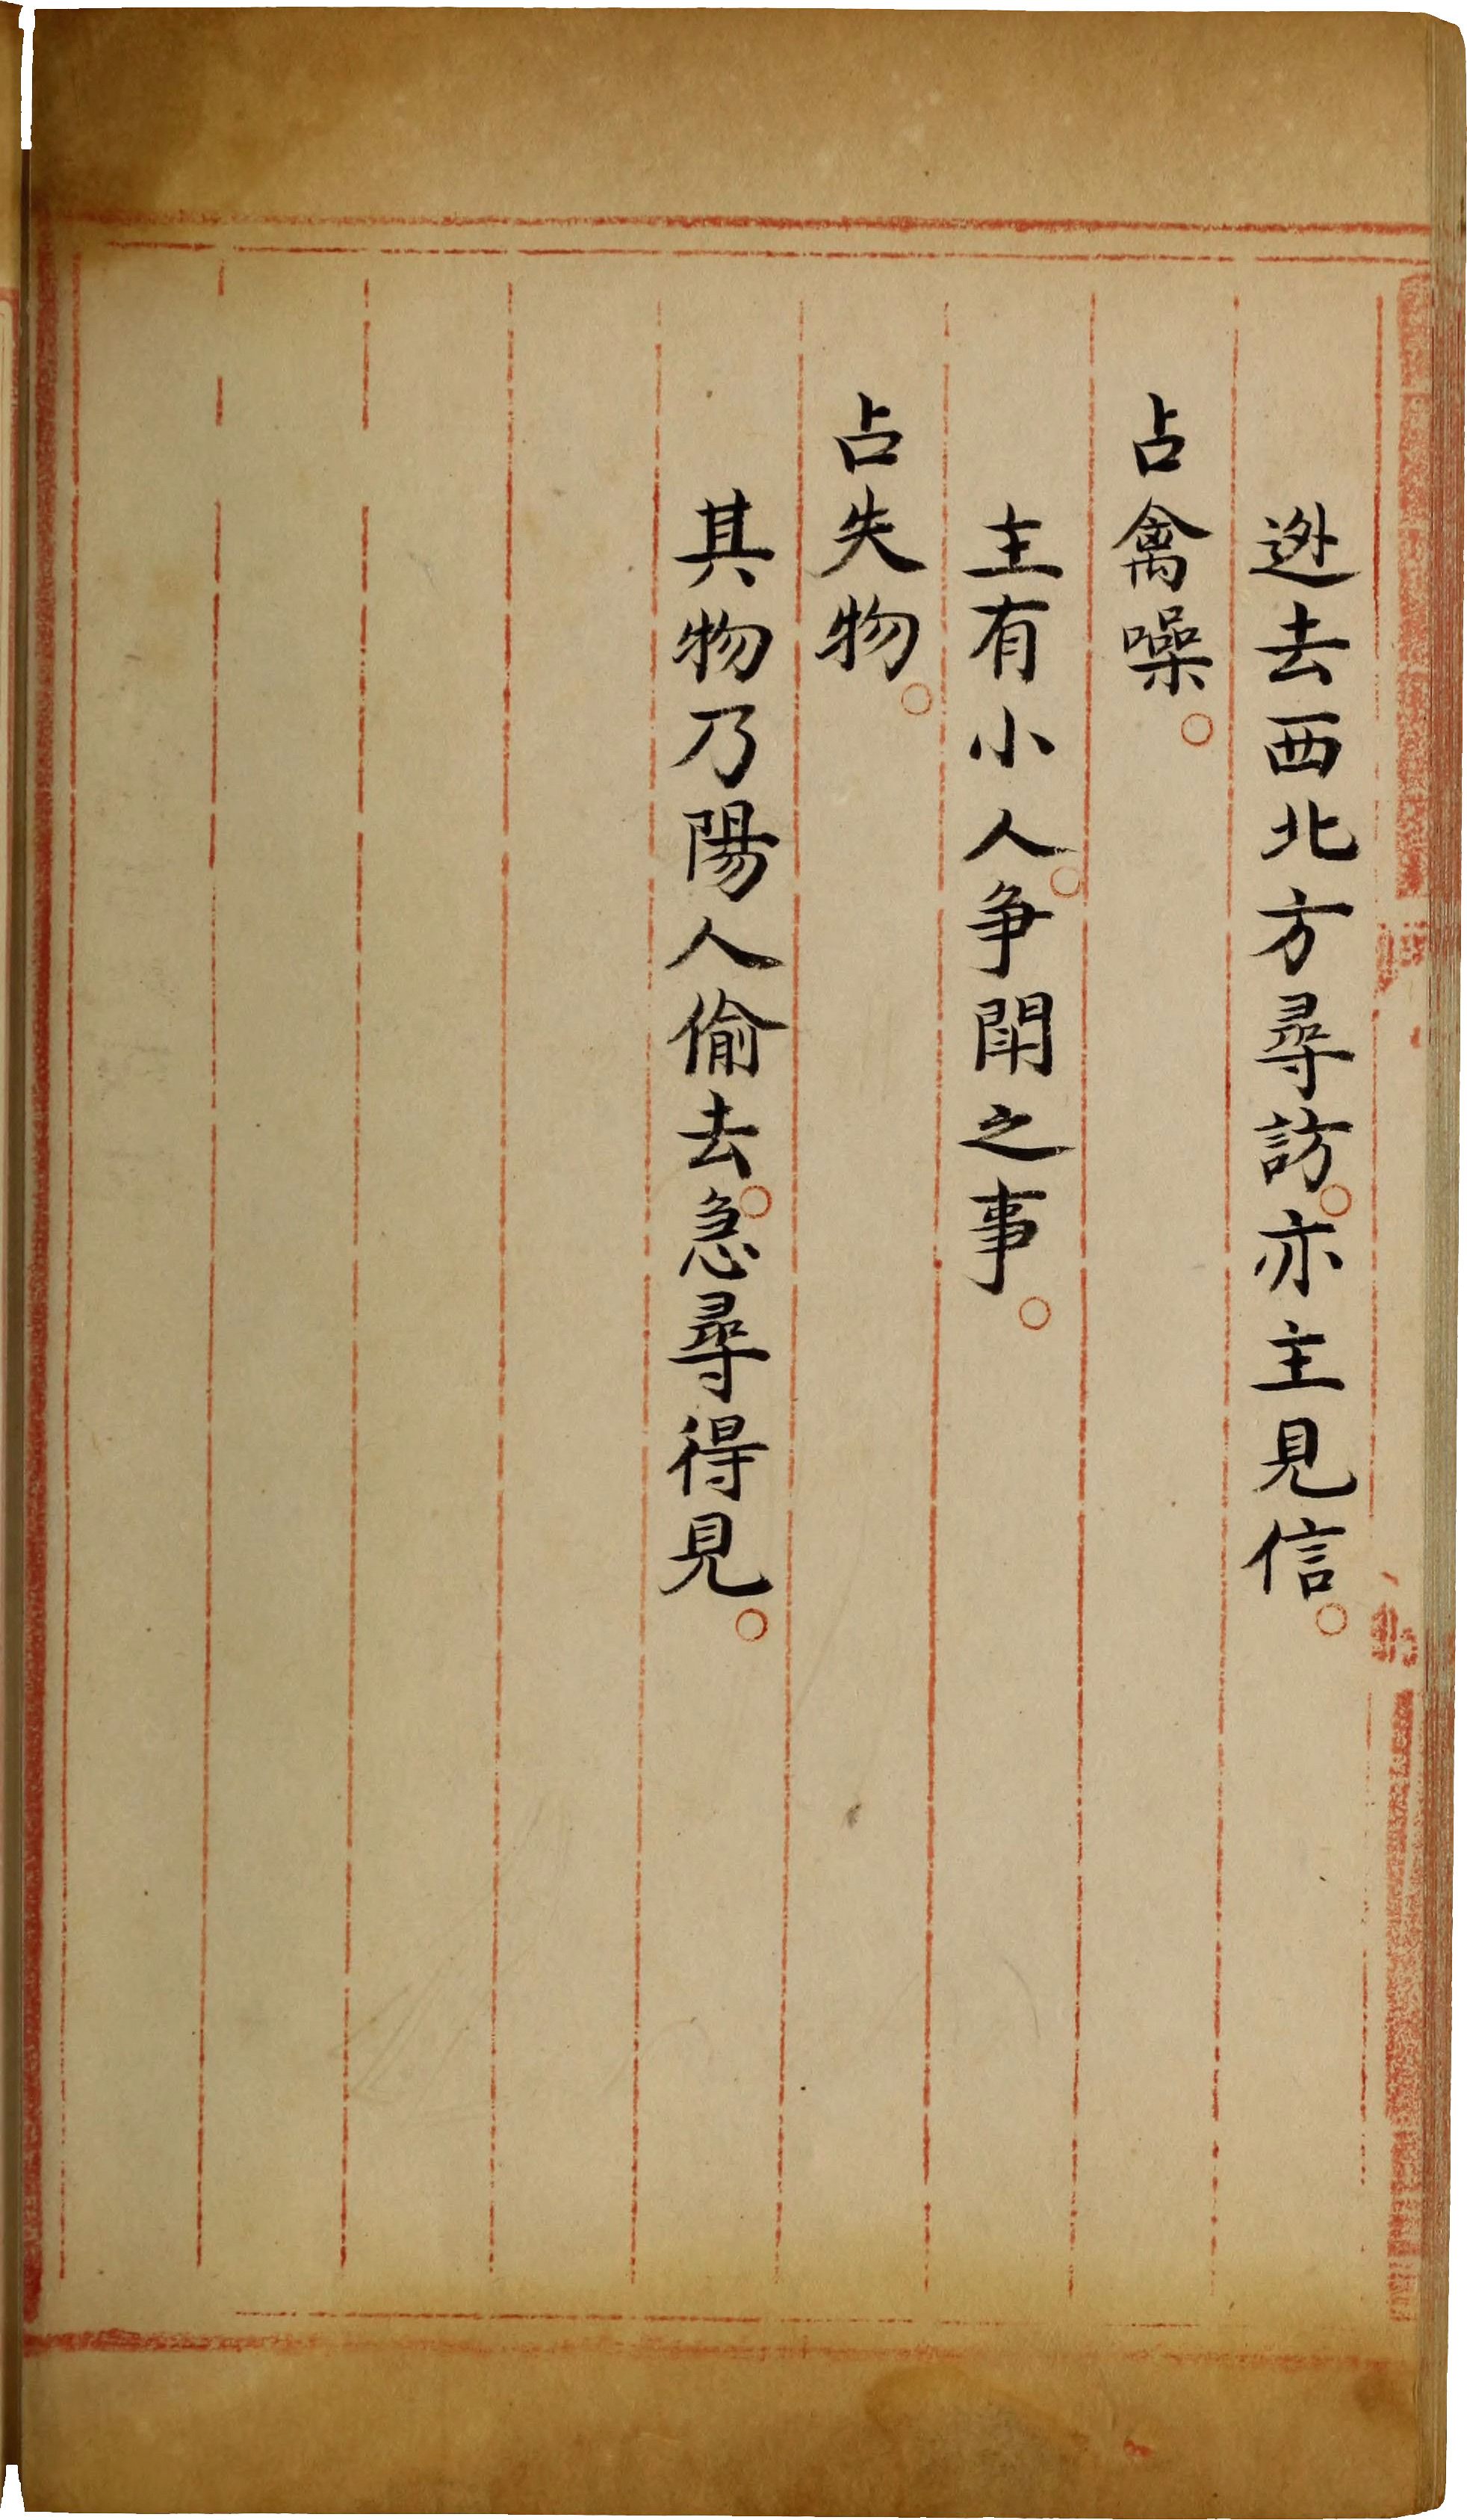 迯去西北方尋訪。亦主見信。
占禽噪。
主有小人。争閙之事。
占失物。
其物乃陽人偷去。急尋得見。